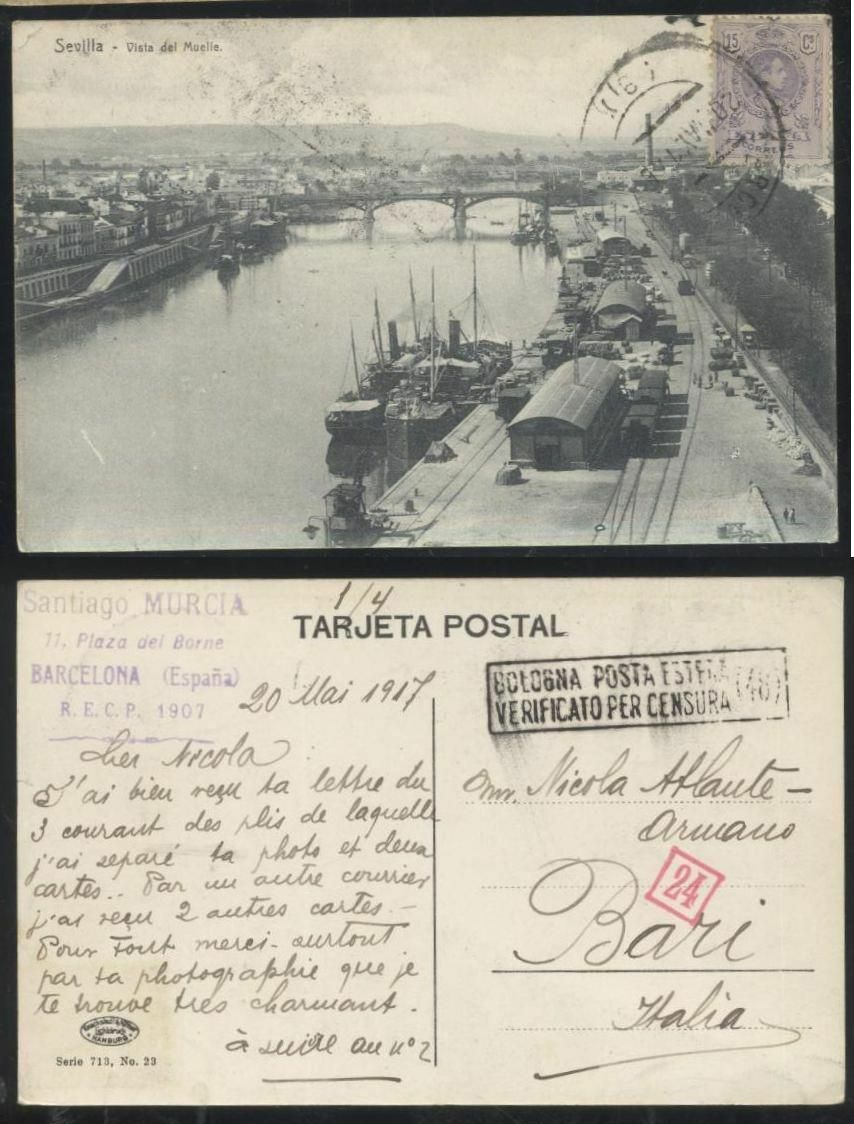 Sevilla - Vista del Muelle.
15 Cs
CORREOS
Santiago MURCIA
11, Plaza del Borne
BARCELONA (España)
R. E. C. P. 1907
1/4
TARJETA POSTAL
20 Mai 1917
BOLOGNA POSTA ESTERA (48)
VERIFICATO PER CENSURA
Cher Nicola
J'ai bien reçu ta lettre du
3 courant des plis de laquelle
j'ai separé ta photo et deux
cartes.. Par un autre courrier
j'ai reçu 2 autres cartes. -
Pour tout merci. surtout
par ta photographie que je
te trouve tres charmant.
à suite au nº 2
Nicola Atlante -
Armano
24
Bari
Italia
HAMBURG
Serie 713, No. 23